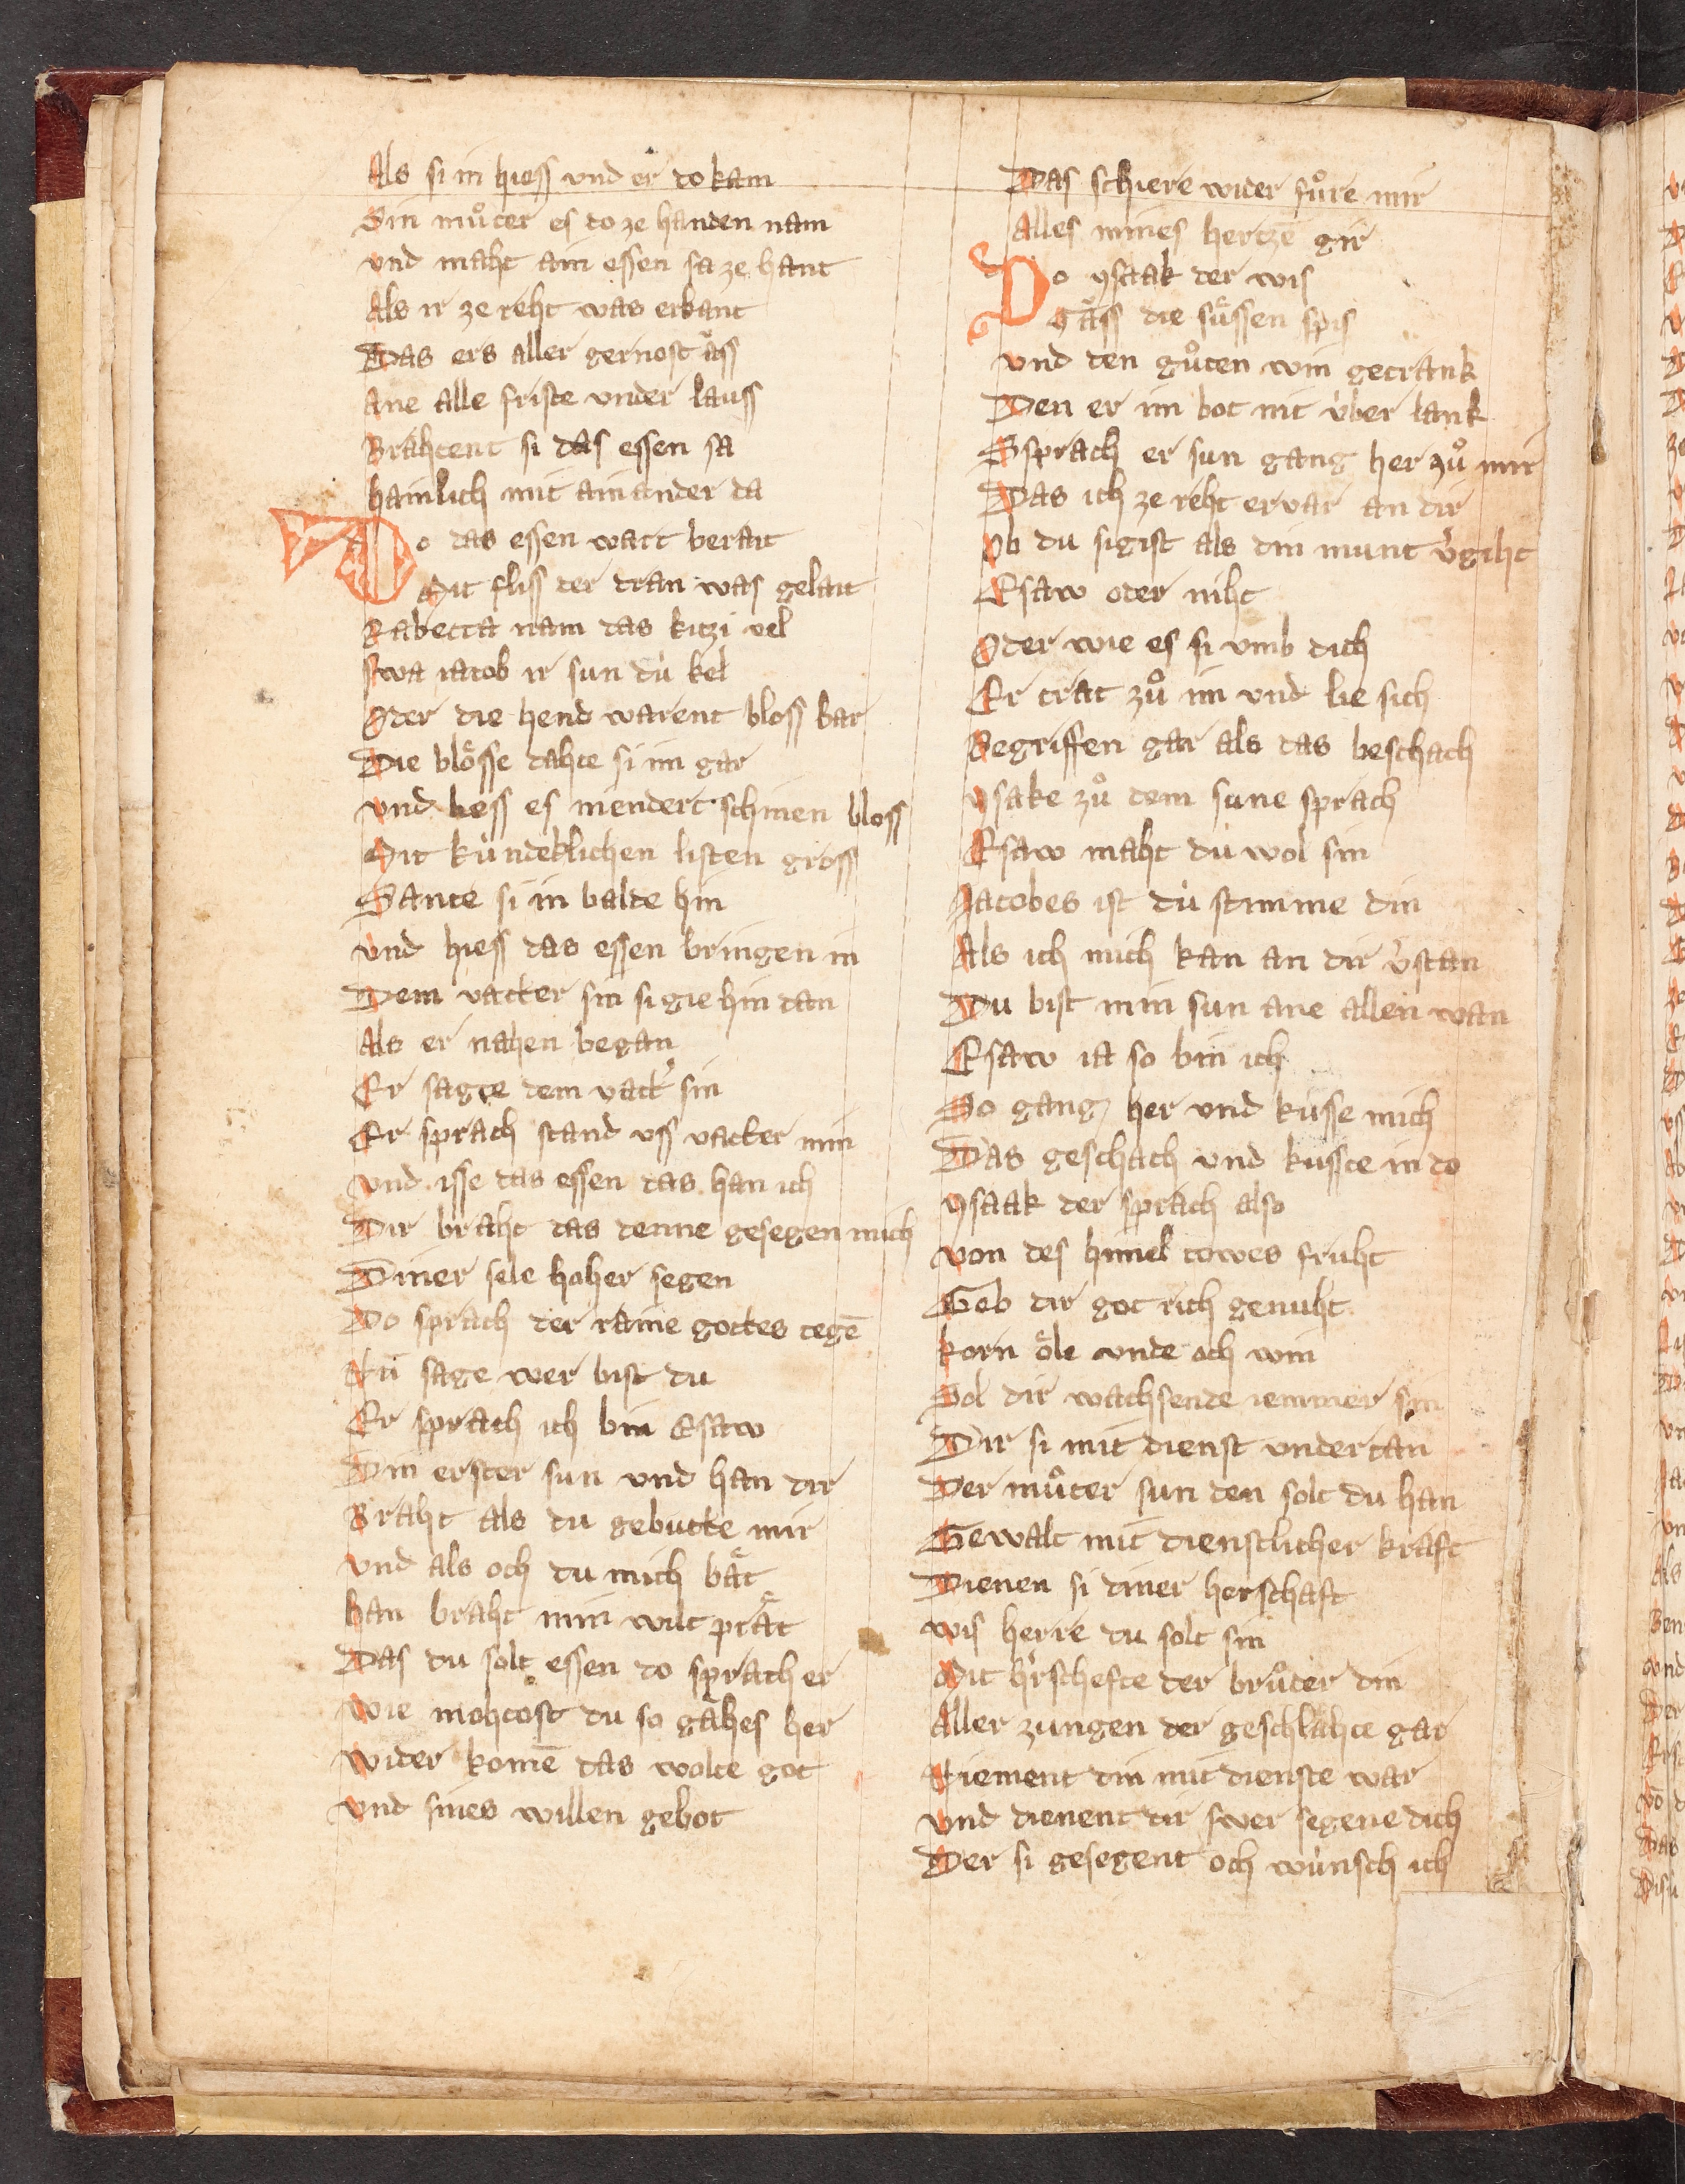 Als si in hiess vnd er do kam
Sin muͦter es do ze handen nam
vnd maht ain essen sa ze hant
Als ir ze reht was erkant
Das ers aller gernost aͤss
Ane alle friste vnder lauss
Brahtent si das essen sa
hainlich mit ainander da
Do das essen wart berait
Mit fliss der dran was gelait
Rabecca nam das kitzi vel
swa iacob ir sun dú kel
Oder die hend warent bloss bar
Die bloͤsse dahte si im gar
vnd liess es niendert schinen bloss
Mit kúndeklichen listen gross
Sante si in balde hin
vnd hiess das essen bringen in
Dem vatter sin si gie hin dan
Als er nahen began
Er sagte dem vatt' sin
Er sprach stand uss vatter min
vnd isse das essen das han ich
Dir braht das denne gesegen mich
Diner sele hoher segen
Do sprach der raine gottes tegē
Nu sage wer bist du
Er sprach ich bin Esaw
Din erster sun vnd han dir
Braht als du gebutte mir
vnd als och du mich baͤt
han braht min wilt praͤt
Das du solt essen do sprach er
wie mohtost du so gaͤhes her
wider komē das wolte got
vnd sines willen gebot
Das schiere wider fuͦre mir
Alles mines hertzē gir
Do ysaak der wis
Gaͤss die suͤssen spis
vnd den guͦten win getrank
Den er im bot nit v́ber lank
Ssprach er sun gang her zuͦ mir
Das ich ze reht ervar an dir
Ob du sigist als din munt v'giht
Esaw oder niht
Oder wie es si vmb dich
Er trat zuͦ im vnd lie sich
Begriffen gar als das beschach
ysake zuͦ dem sune sprach
Esaw maht du wol sin
Jacobes ist dú stimme din
Als ich mich kan an dir v'stan
Du bist min sun ane allen wan
Esaw ia so bin ich
So gang her vnd kússe mich
Das geschach vnd kuste in do
ysaak der sprach also
von des himel towes fruht
Geb dir got rich genuht
korn oͤle vnde och win
Sol dir wachsende iemmer sin
Dir si mit dienst vndertan
Der muͦter sun den solt du han
Gewalt mit dienstlicher kraft
Dienen si diner herschaft
wis herre du solt sin
Mit h'rschefte der bruͦder din
Aller zungen der geschlahte gar
Niement din mit dienste war
vnd dienent dir swer segene dich
Der si gesegent och wúnsch ich